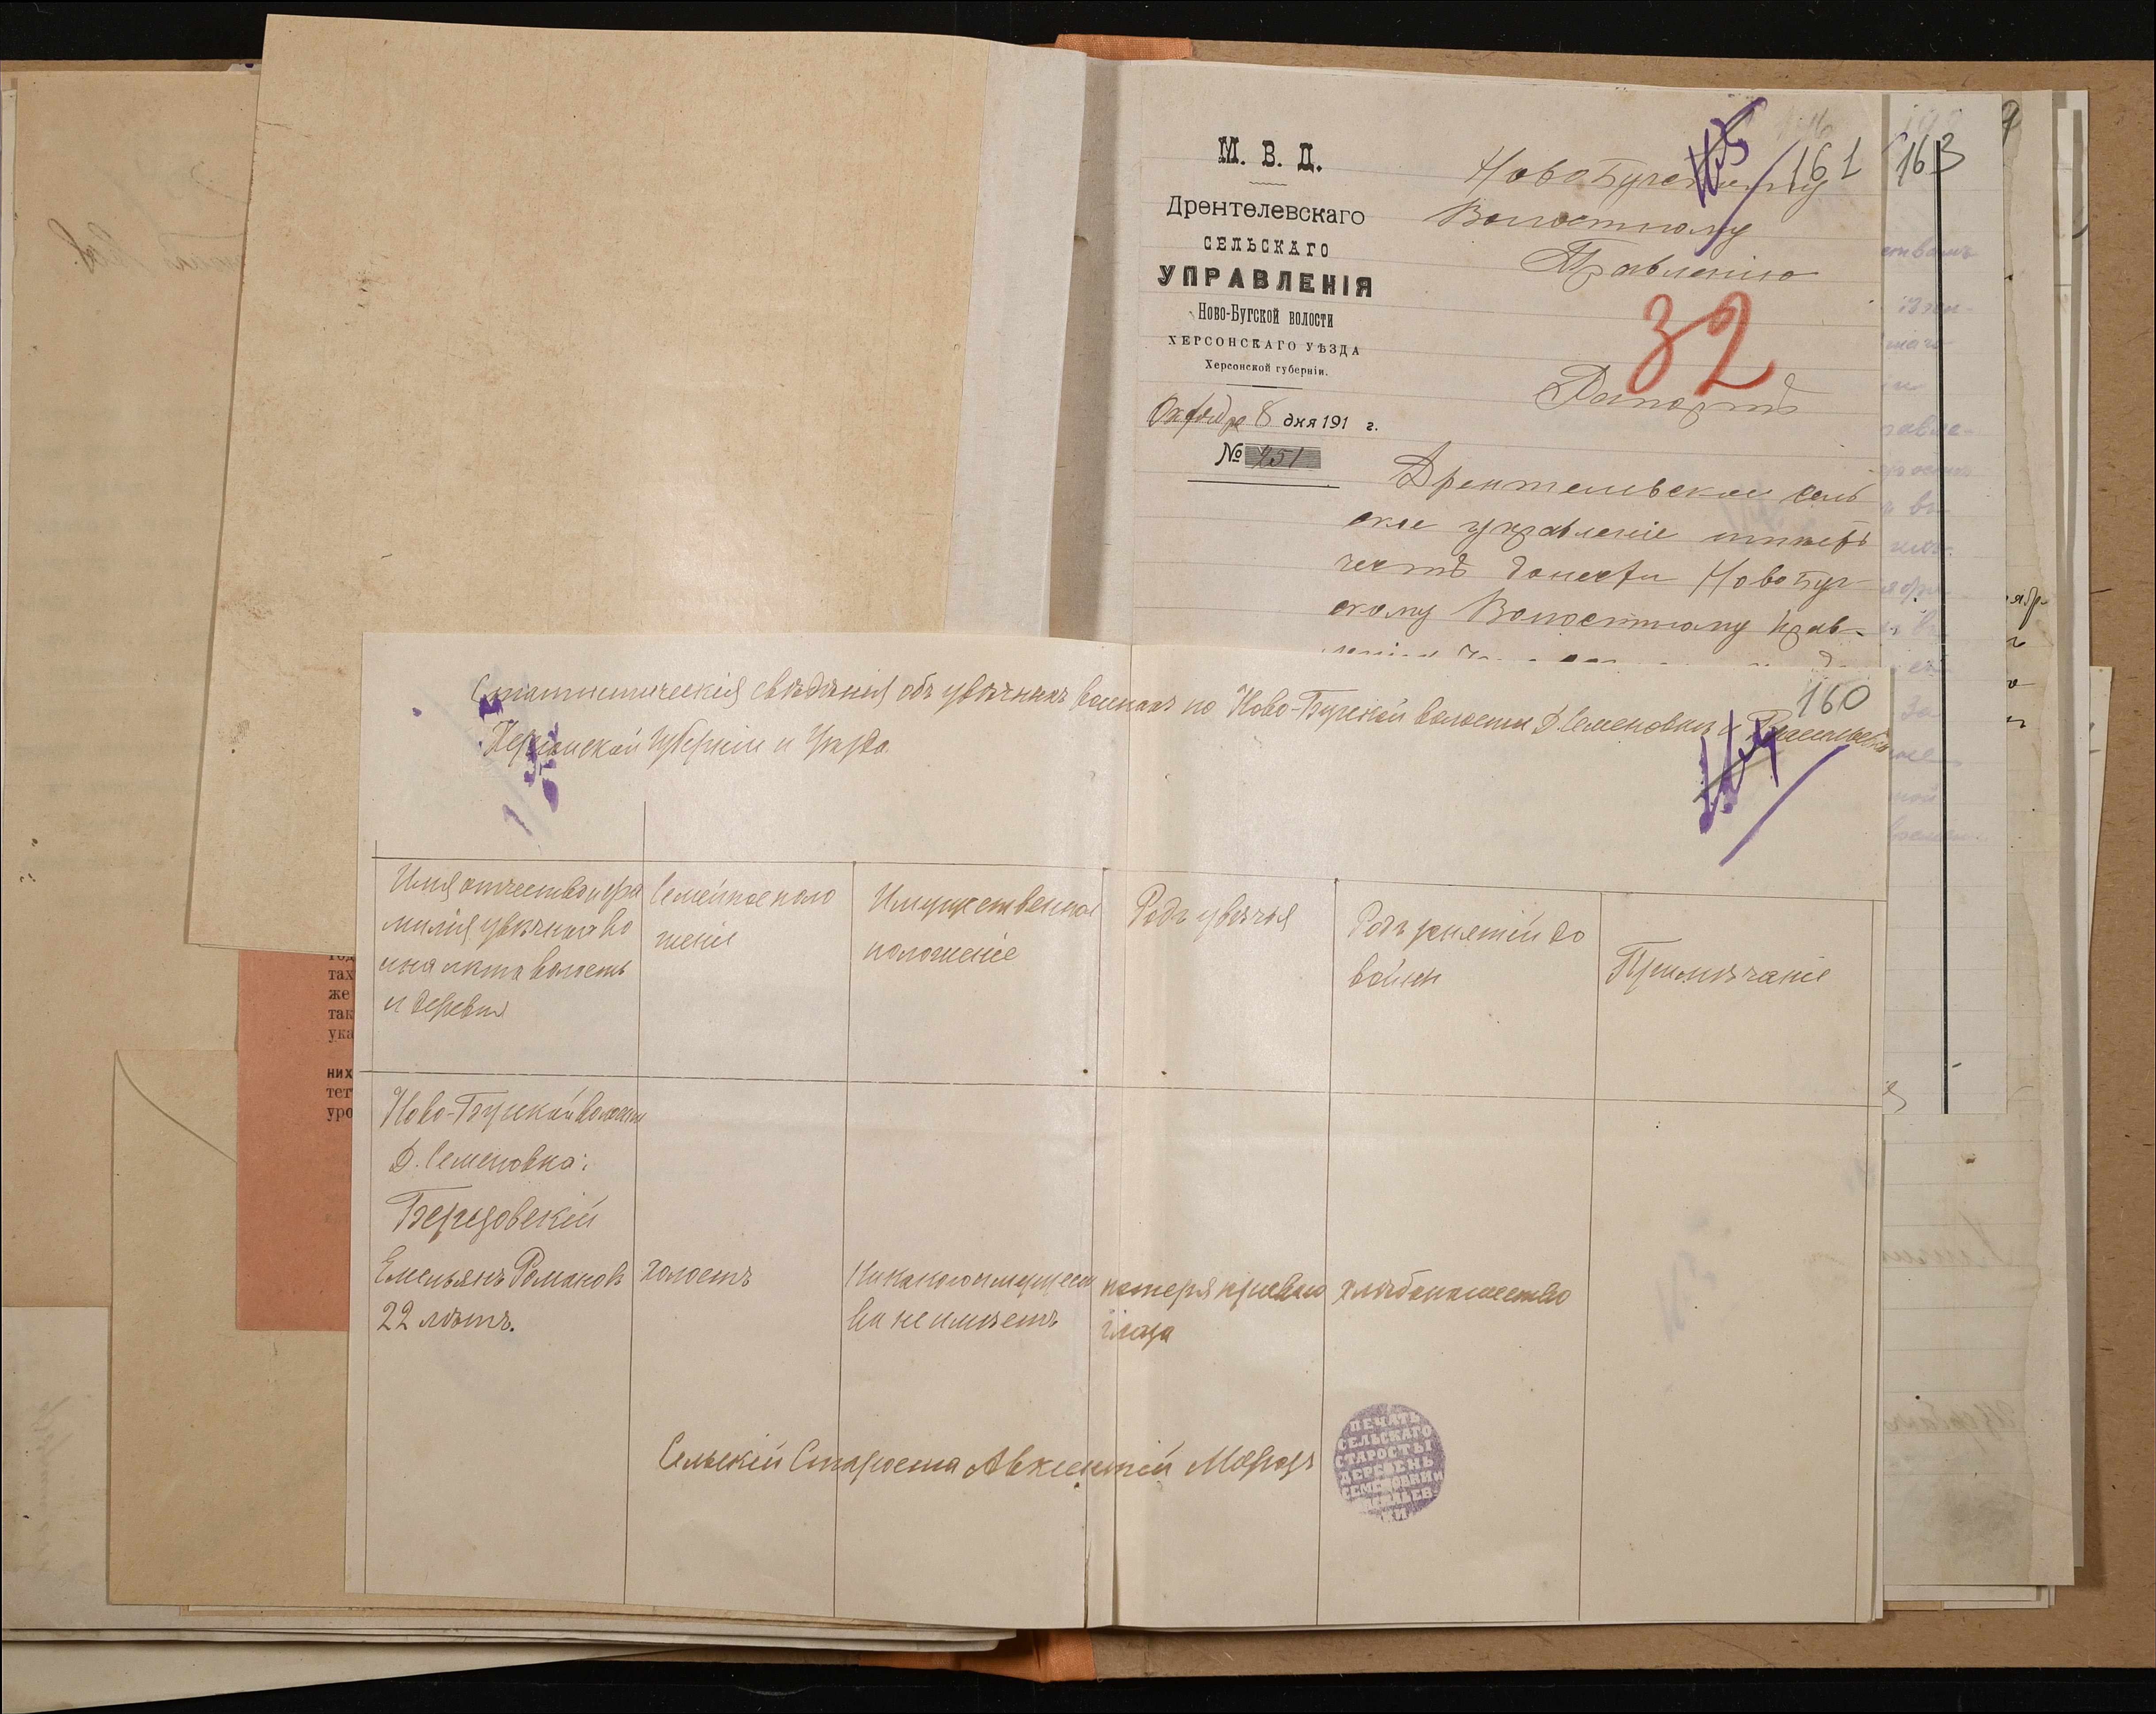 М. В. Д.
Дрентелевскаго
СЕЛЬСКАГО
УПРАВЛЕНІЯ
Ново-Бугской волости
ХЕРСОНСКАГО УѢЗДА
Херсонской губерніи.
Октября 8 дня 191 г.
№ 251
161
Новобугскому
Волостному
Правленію
32
Рапортъ
Дрентельвское сель
ское управленіе имѣетъ
честь донести Новобуг-
скому Волостному прав-
163
160
Статистическія свѣдѣнія объ увѣчныхъ воинахъ по Ново-Бугской волости Д. Семеновки и
Херсонской Губерніи и Уѣзда
Имя отчество и фа
милія увѣчнаго во
ина лѣта волость
и деревня
Семейное поло
женіе
Имущественное
положеніе
Родъ увѣчья
Родъ занятій до
войны
Примѣчаніе
Ново-Бугской волости
Д. Семеновка:
Березовскій
Емельянъ Романовъ
22 лѣтъ.
холостъ
Никакого имущест
ва не имѣетъ
потеря праваго
глаза
хлѣбопашество
Сельскій Староста Авксентій Морозъ
ПЕЧАТЬ
СЕЛЬСКАГО
СТАРОСТЫ
ДЕРЕВЕНЬ
СЕМЕНОВКИ и
КИ
тах
же
так
ука
них
тет
уро